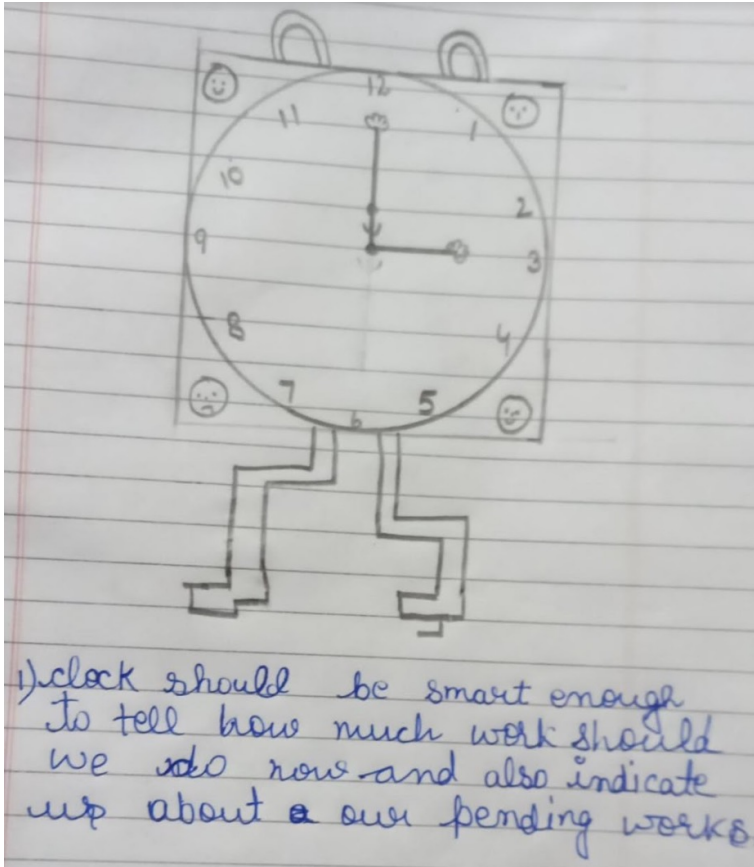 12
11 1
10 2
9 3
8 4
7 5
6
1) clock should be smart enough
to tell how much work should
we do now and also indicate
us about our pending works